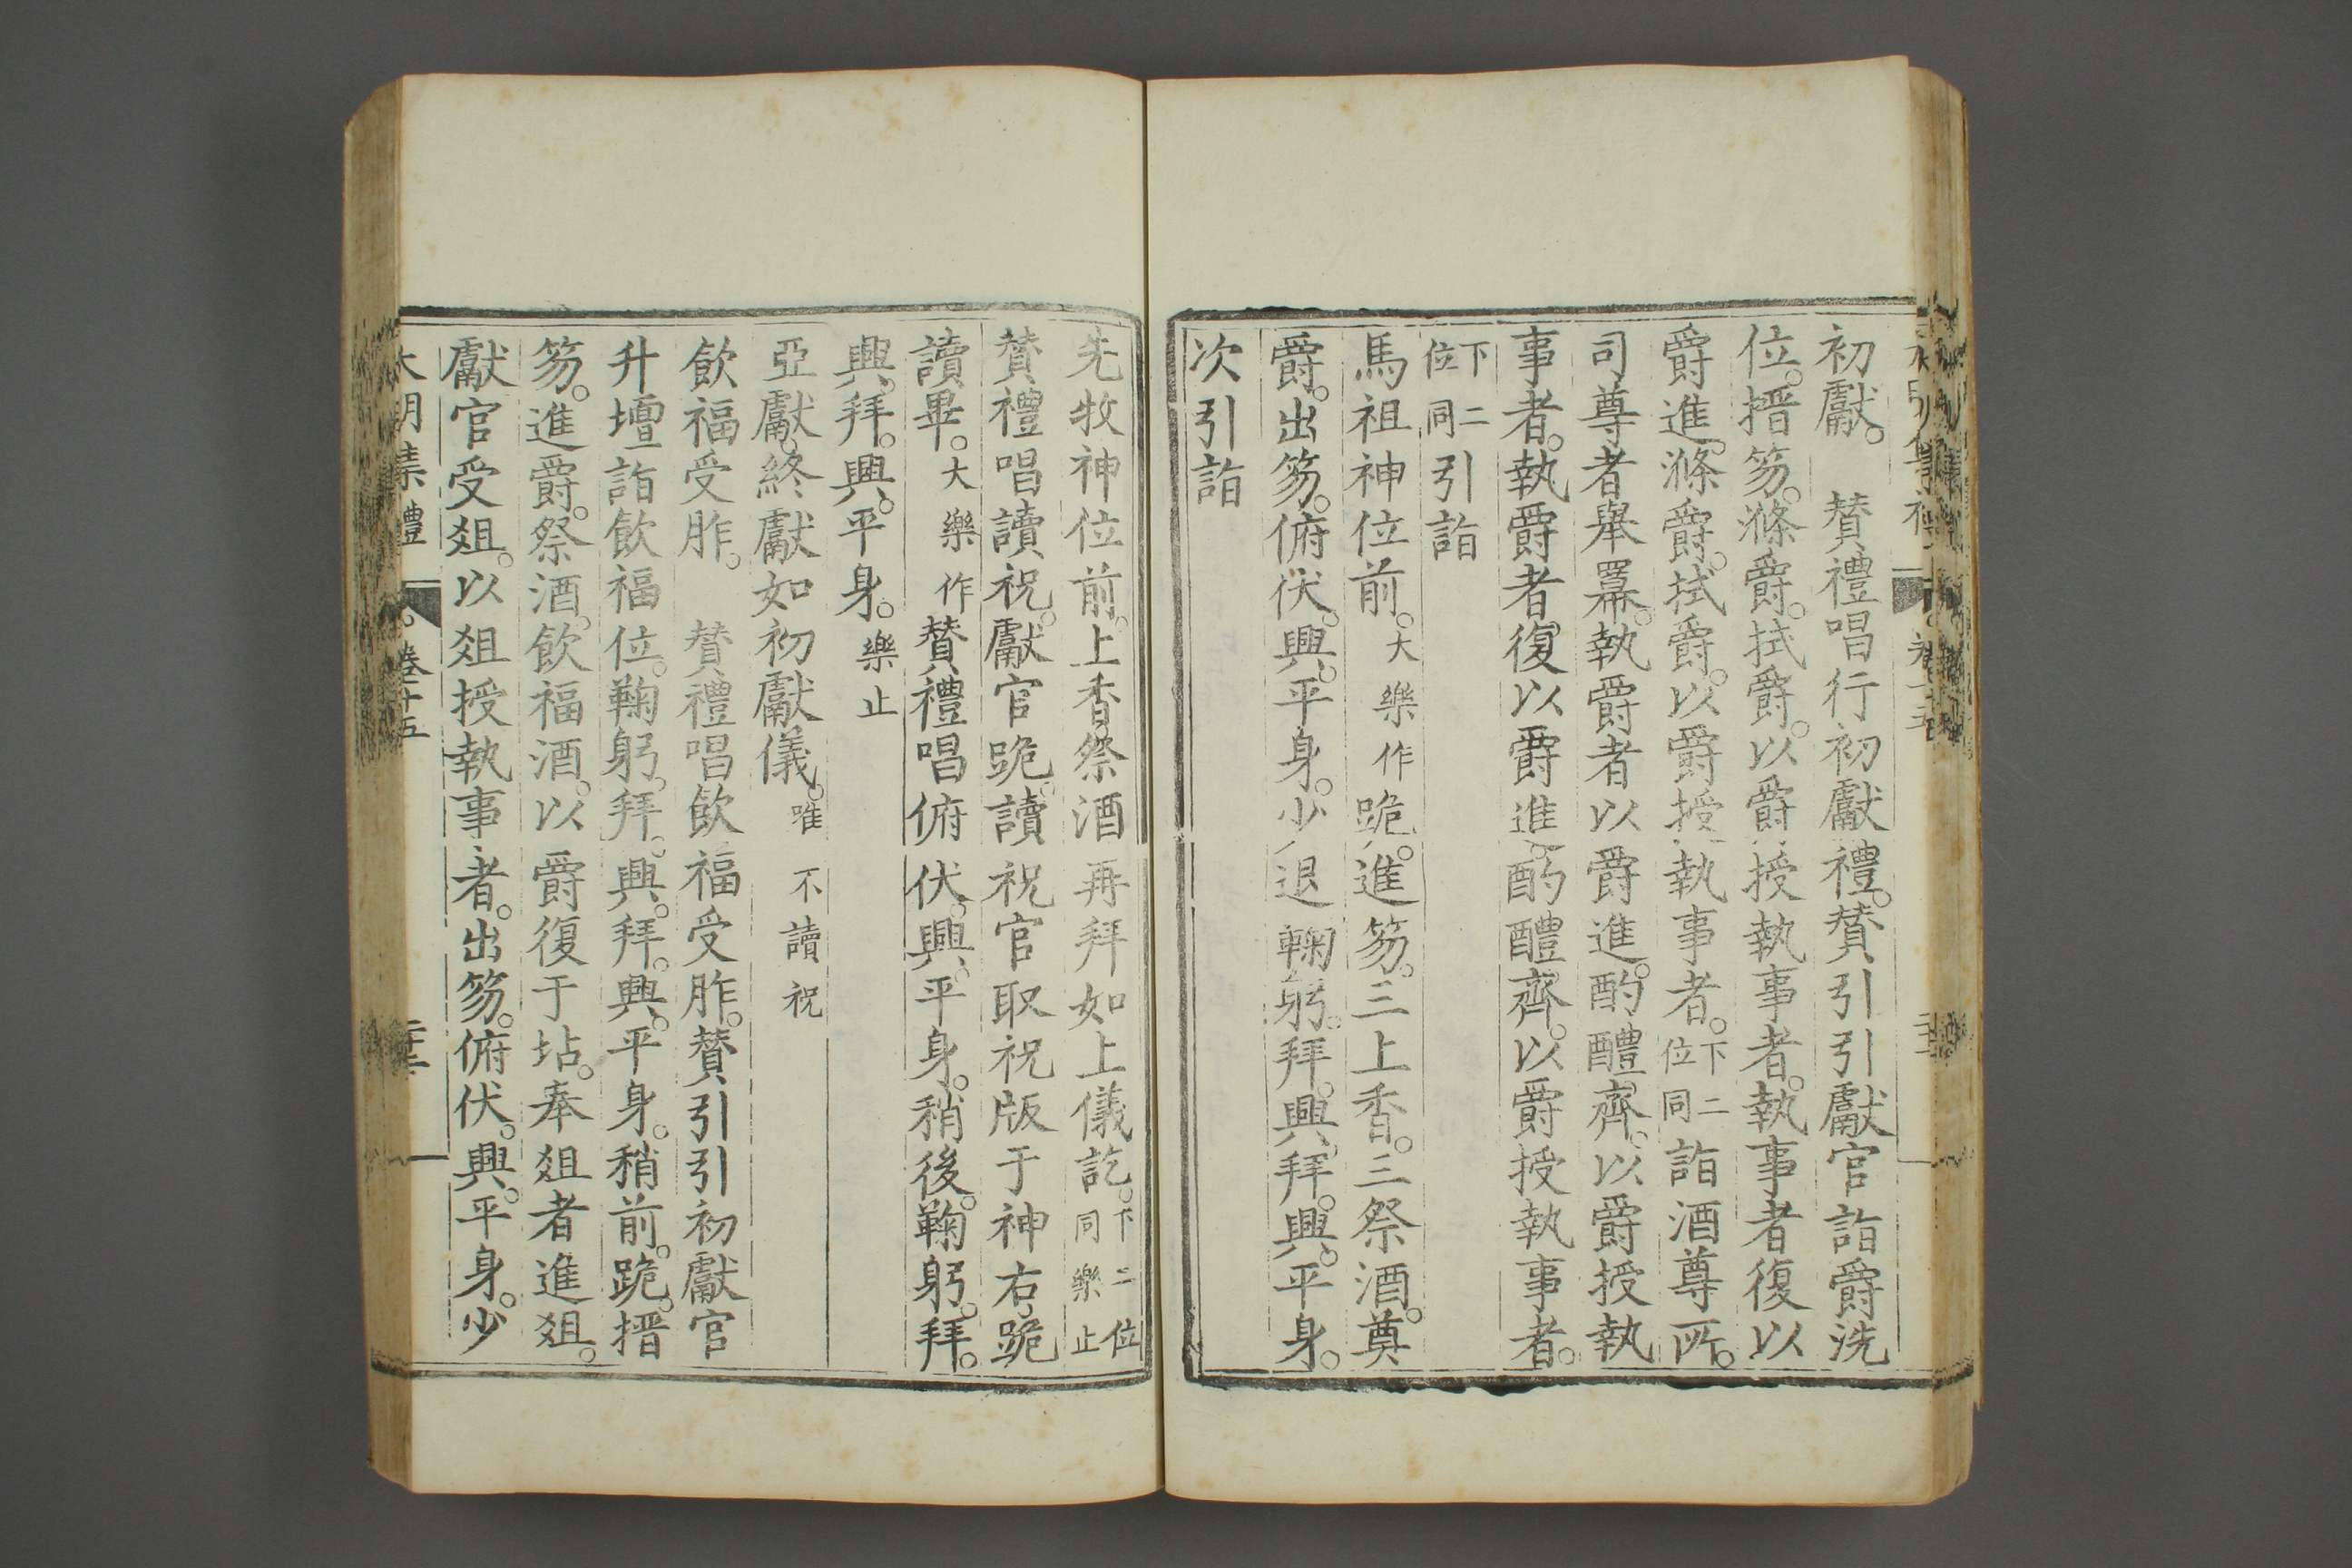 初獻。　贊禮唱行初獻禮。贊引引獻官詣爵洗
位。搢笏。滌爵。拭爵。以爵授執事者。執事者復以
爵進。滌爵。拭爵。以爵授執事者。下二位同詣酒尊所。
司尊者舉羃。執爵者以爵進。酌醴齊。以爵授執
事者。執爵者復以爵進。酌醴齊。以爵授執事者。
下二位同引詣
馬祖神位前。大樂作跪。進笏。三上香。三祭酒。奠
爵。出笏。俯伏。興。平身。少退鞠躬。拜。興。拜。興。平身。
次引詣
先牧神位前。上香。祭酒再拜如上儀訖。下二位同樂止
贊禮唱讀祝。獻官跪。讀祝官取祝版于神右。跪
讀畢。大樂作贊禮唱俯伏。興。平身。稍後。鞠躬。拜。
興。拜。興。平身。樂止
亞獻。終獻如初獻儀。唯不讀祝
飲福受胙。　贊禮唱飲福受胙。贊引引初獻官
升壇詣飲福位。鞠躬。拜。興。拜。興。平身。稍前。跪。搢
笏。進爵。祭酒。飲福酒。以爵復于坫。奉俎者進俎。
獻官受俎。以俎授執事者。出笏。俯伏。興。平身。少
大明集禮　卷十五